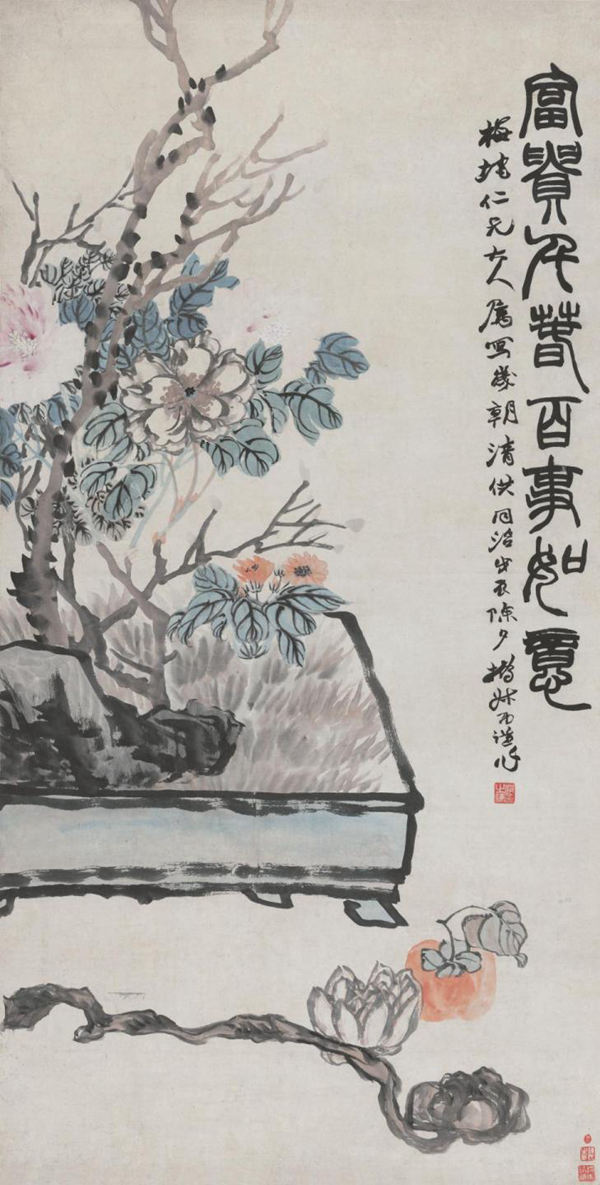 富貴千春百事如意
梅仁兄大人屬寫歲朝清供同治戊辰除夕撝叔謙作